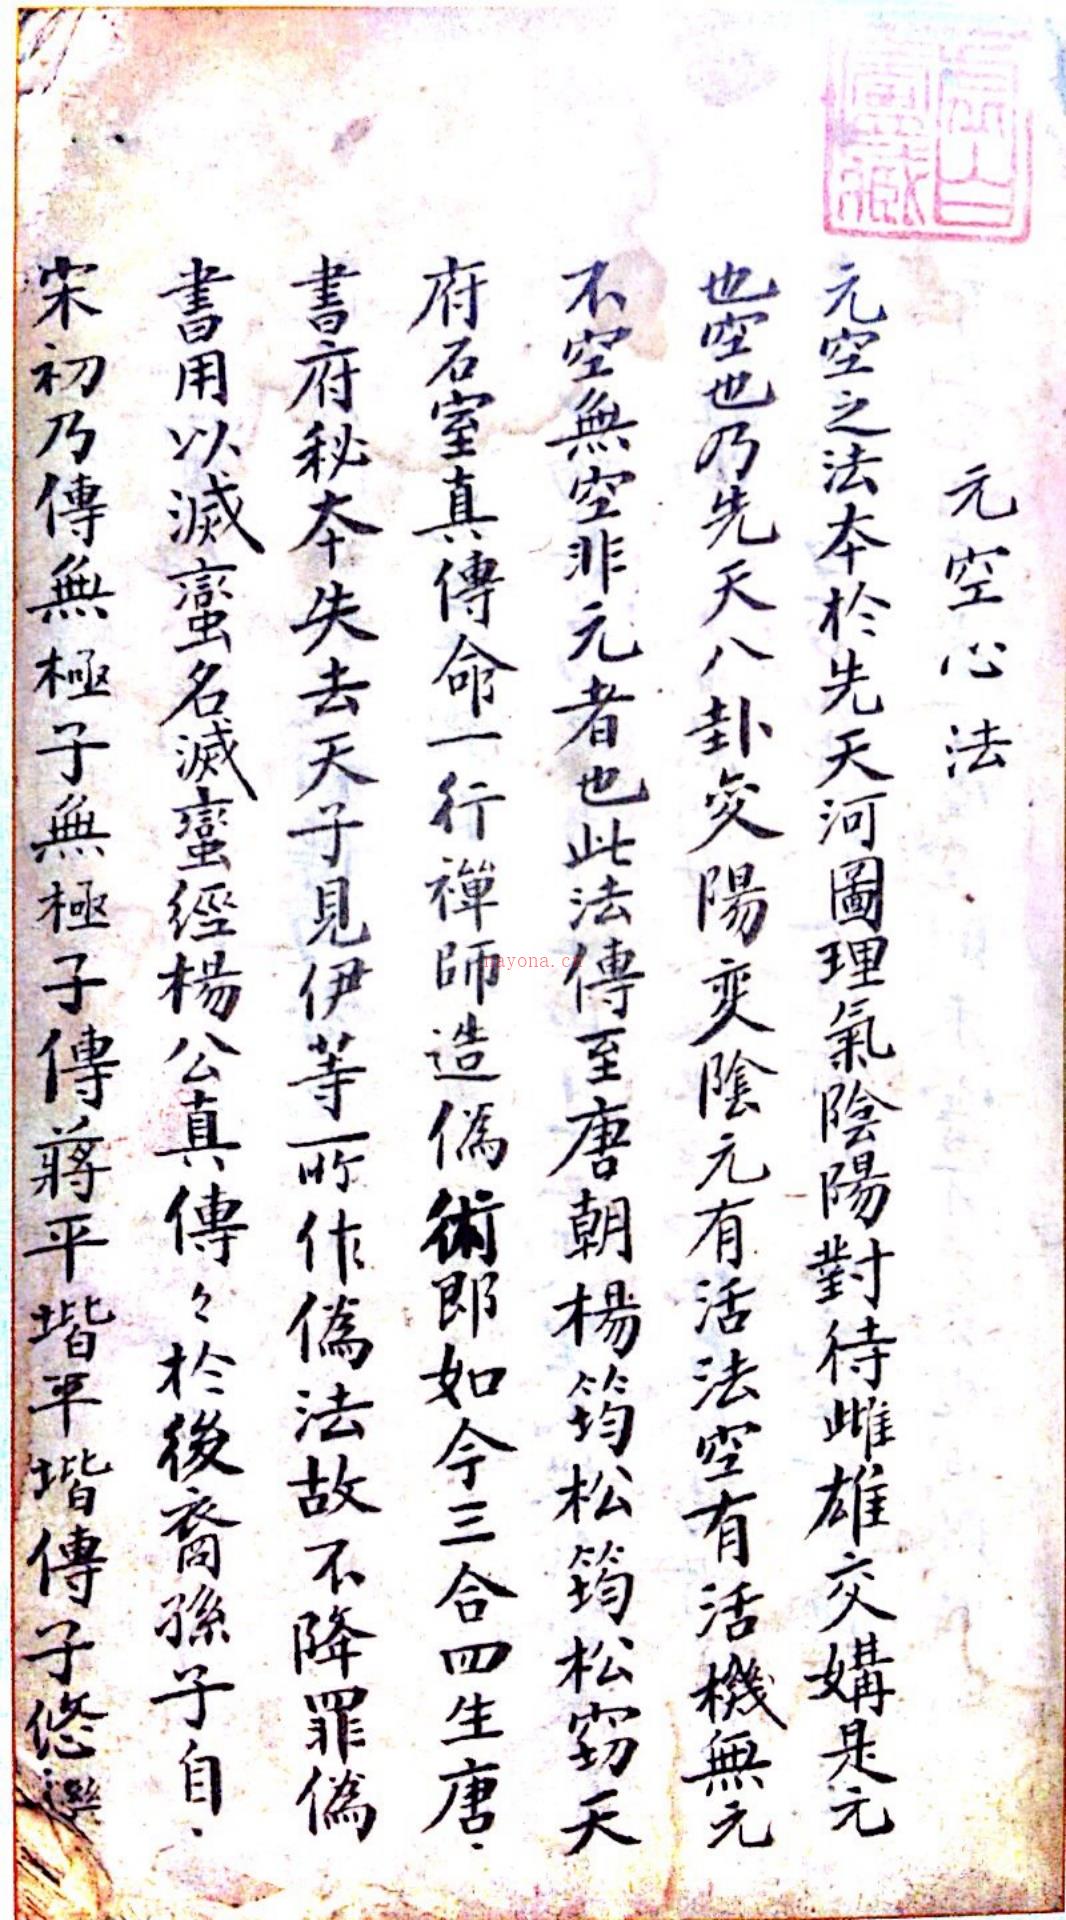 元空心法
元空之法本於先天河圖理氣陰陽對待雌雄交媾是元
也空也乃先天八卦交陽变陰元有活法空有活機無元
不空無空非元者也此法傳至唐朝楊筠松筠松窃天
府石室真傳命一行禪師造偽術即如今三合四生唐
書府秘本失去天子見伊等所作偽法故不降罪偽
書用以滅蠻名滅蠻經楊公真傳々於後裔孫子自
宋初乃傳無極子無極子傳蔣平堦平堦傳子悠
nayona.cn